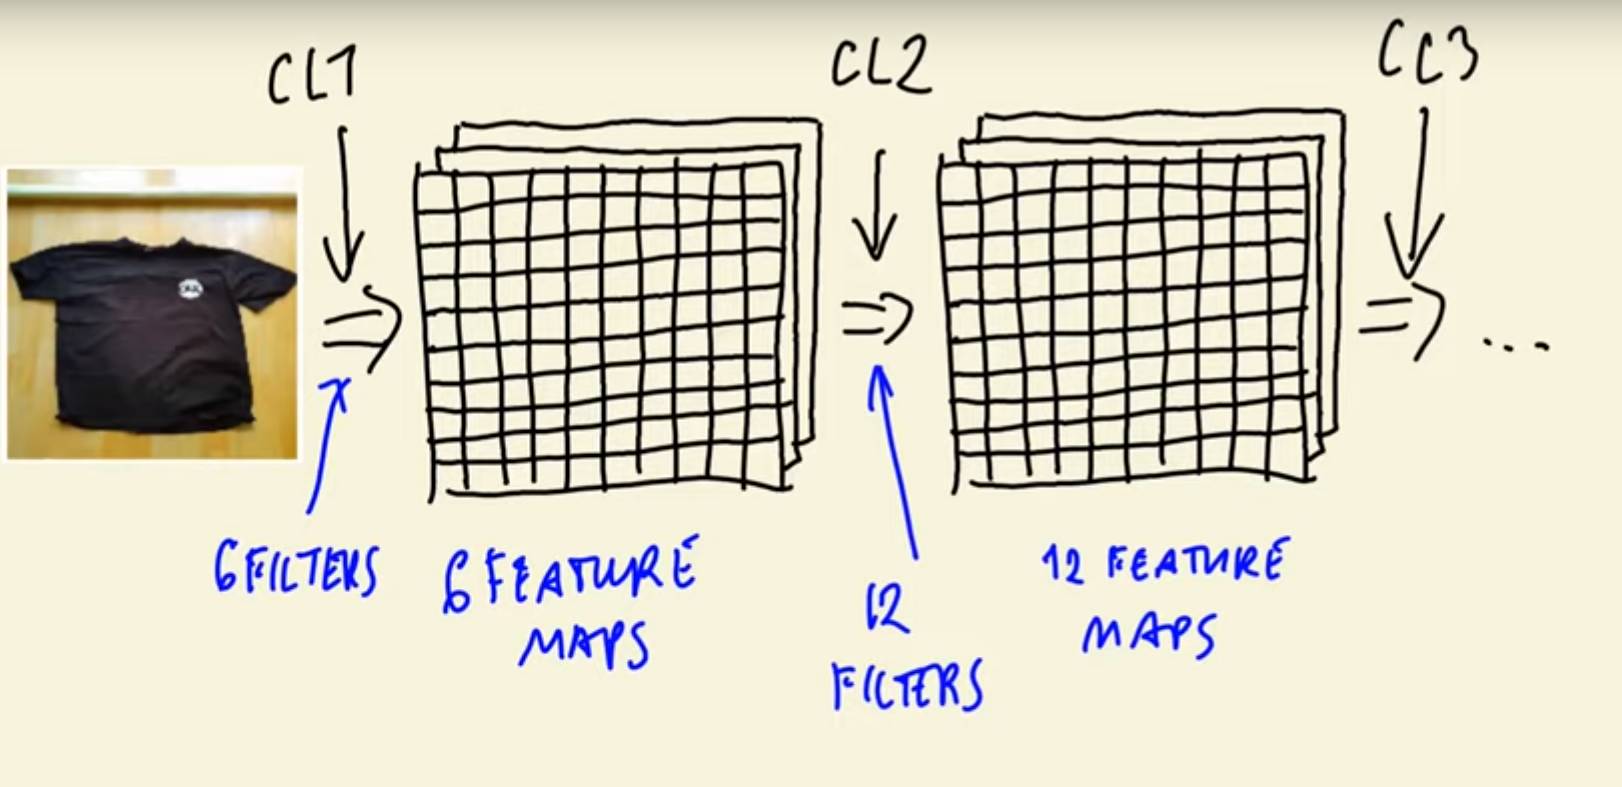 CL1
CL2
CL3
6 FILTERS
6 FEATURE
MAPS
12
FILTERS
12 FEATURE
MAPS
...